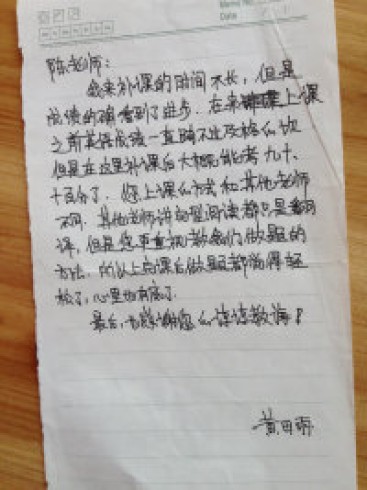 Memo No.
Date
陈老师：
我来补课的时间不长，但是
成绩的确看到了进步。在来上课
之前英语成绩一直都不及格的
但是在这里补课后大概能考九十、
一百分了。您上课的方式和其他老师
不同。其他老师讲完型阅读都只是翻
译，但是您更重视教会我们做题的
方法。所以上完课后做题都觉得轻
松了，心里也有底了。
最后，感谢您的谆谆教诲！
黄